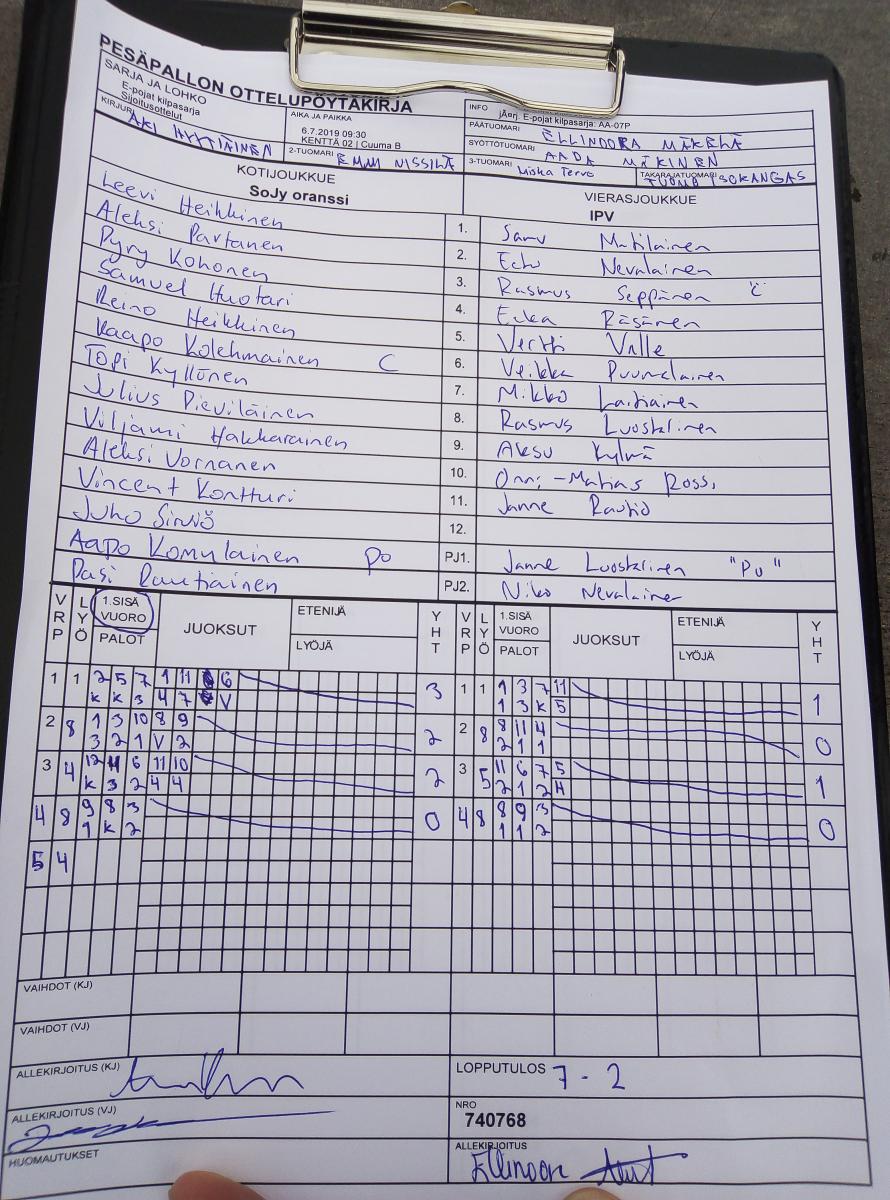 PESÄPALLON OTTELUPÖYTÄKIRJA
SARJA JA LOHKO
E-pojat kilpasarja
Sijoitusottelut
AIKA JA PAIKKA
6.7.2019 09:30
KENTTÄ 02 | Cuuma B
INFO
jÄerj. E-pojat kilpasarja: AA-07P
PÄÄTUOMARI ELLINOORA MÄKELÄ
KIRJURI AKI HYTTIÄINEN
2-TUOMARI EMMI NISSILÄ
SYÖTTÖTUOMARI AADA MÄKINEN
3-TUOMARI Miska Tervo
TAKARAJATUOMARI TUOMO ISOKANGAS
KOTIJOUKKUE
SoJy oranssi
VIERASJOUKKUE
IPV
Leevi Heikkinen 1. Samu Matilainen
Aleksi Partanen 2. Eeho Nevalainen
Pyry Kohonen 3. Rasmus Seppänen "C"
Samuel Huotari 4. Räsänen
Reino Heikkinen 5. Vertti Valle
Kaapo Kolehmainen C 6. Veikka Puumalainen
Topi Kyllönen 7. Mikko Laitiainen
Julius Pieviläinen 8. Rasmus Luostarinen
Viljami Hakkarainen 9. Aksu Kylmä
Aleksi Vornanen 10. Onni-Matias Rossi
Vincent Kontturi 11. Janne Rautio
Juho Sirviö 12.
Aapo Komulainen PO PJ1. Janne Luostarinen "PU"
Pasi Rautiainen PJ2. Niko Nevalainen
VRP LYÖ 1.SISÄ VUORO PALOT JUOKSUT ETENIJÄ LYÖJÄ YHT VRP LYÖ 1.SISÄ VUORO PALOT JUOKSUT ETENIJÄ LYÖJÄ YHT
1 1 2 5 7 1 11 6 3 1 1 1 3 7 11 1
K K 3 4 7 V 1 3 K 5
2 8 1 3 10 8 9 2 2 8 8 11 4 0
3 2 1 V 2 2 1 1
3 4 12 11 6 11 10 2 3 5 11 6 7 5 1
K 3 2 4 4 2 1 2 4
4 8 9 8 3 0 4 8 8 9 3 0
1 K 2 1 1 2
5 4
VAIHDOT (KJ)
VAIHDOT (VJ)
ALLEKIRJOITUS (KJ)
LOPPUTULOS 7 - 2
ALLEKIRJOITUS (VJ)
NRO
740768
HUOMAUTUKSET
ALLEKIRJOITUS Ellinoora